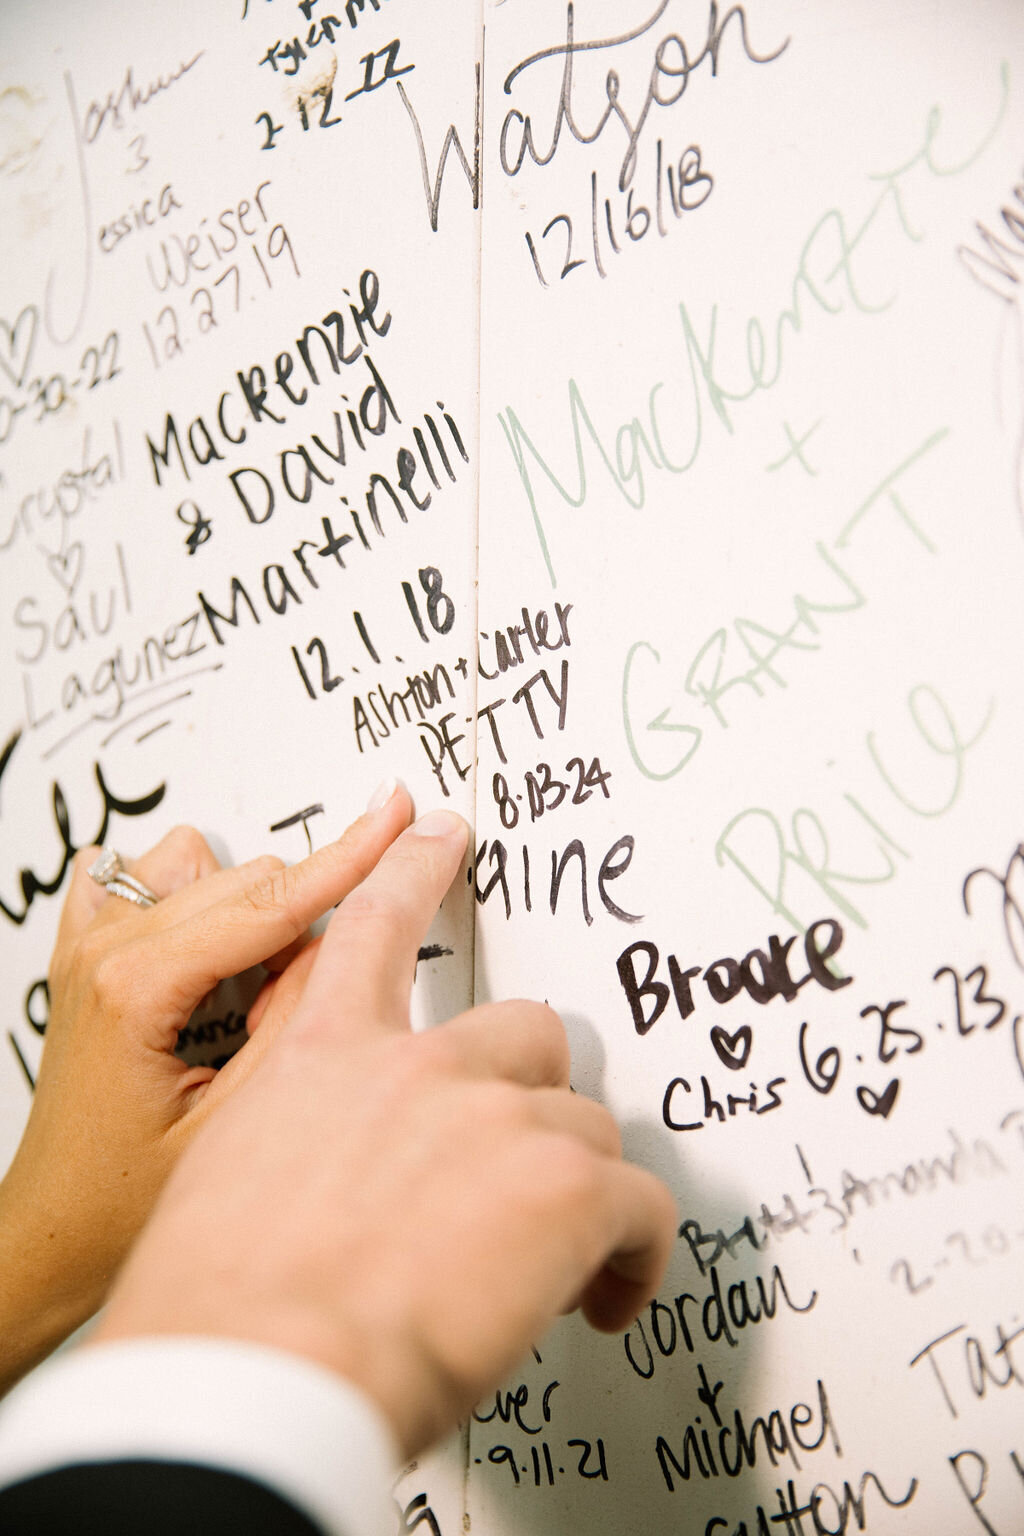 Tyler
2-12-22
Watson
12/16/18
Joshua
3
Jessica
Weiser
12.27.19
-30-22
Mackenzie
& David
Martinelli
12.1.18
Crystal
♡
Saul
Lagunez
Mackenzie
+
GRANT
PRICE
Ashton + Carter
PETTY
8.03.24
aine
Brooke
♡ 6.25.23
Chris ♡
Brett & Amanda
2-20-
Jordan
+
Michael
utton
Tati
ver
.9.11.21